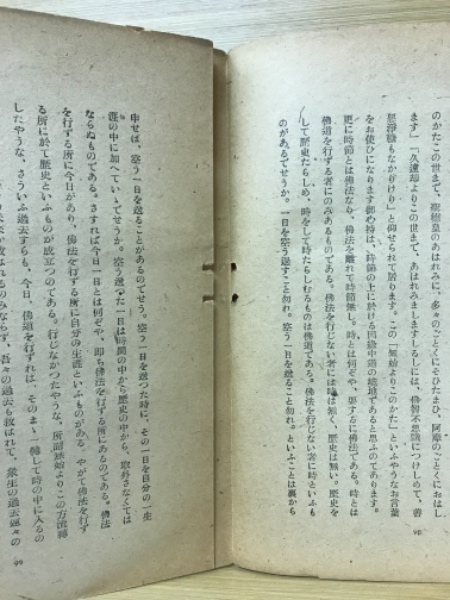 のかたこの世まで、聖德皇のあはれみに、多々のごとくにそひたまひ、阿摩のごとくにおはし
ます」「久遠劫よりこの世まで、あはれみましますしるしには、佛智不思議につけしめて、善
惡淨穢もなかりけり」と仰せられて居ります。この「無始よりこのかた」といふやうなお言葉
をお使ひになります御心持は、時節の上に於ける
更に時節とは佛法なり、佛法を離れて時節無し。時とは何ぞや、要するに佛法である。時とは
佛道を行ずる者にのみあるものである。佛法を行じない者には時は無く、歷史は無い。歷史を
して歷史たらしめ、時をして時たらしむるものは佛道である。佛法を行じない者に時といふも
のがあるでせうか。一日を空う過すこと勿れ。空う一日を過ること勿れ。といふことは裏から
98
申せば、空う一日を過ることがあるのでせう。空う一日を過つた時に、その一日を自分の一生
涯の中に加へていゝでせうか。空う過つた一日は時間の中から歷史の中から、取除さなくては
ならぬものである。さすれば今日一日とは何ぞや、即ち佛法を行ずる所にあるのである。佛法
を行ずる所に今日があり、佛法を行ずる所に自分の生涯といふものがある。やがて佛法を行ず
る所に於て歷史といふものが成立つのである。行じなかつたやうな、所謂無始よりこの方流轉
したやうな、さういふ過去すらも、今日、佛道を行ずれば、そのまゝ一轉して時の中に入るの
救はれるのみならず、吾々の過去も救はれて、衆生の過去遠々の
99